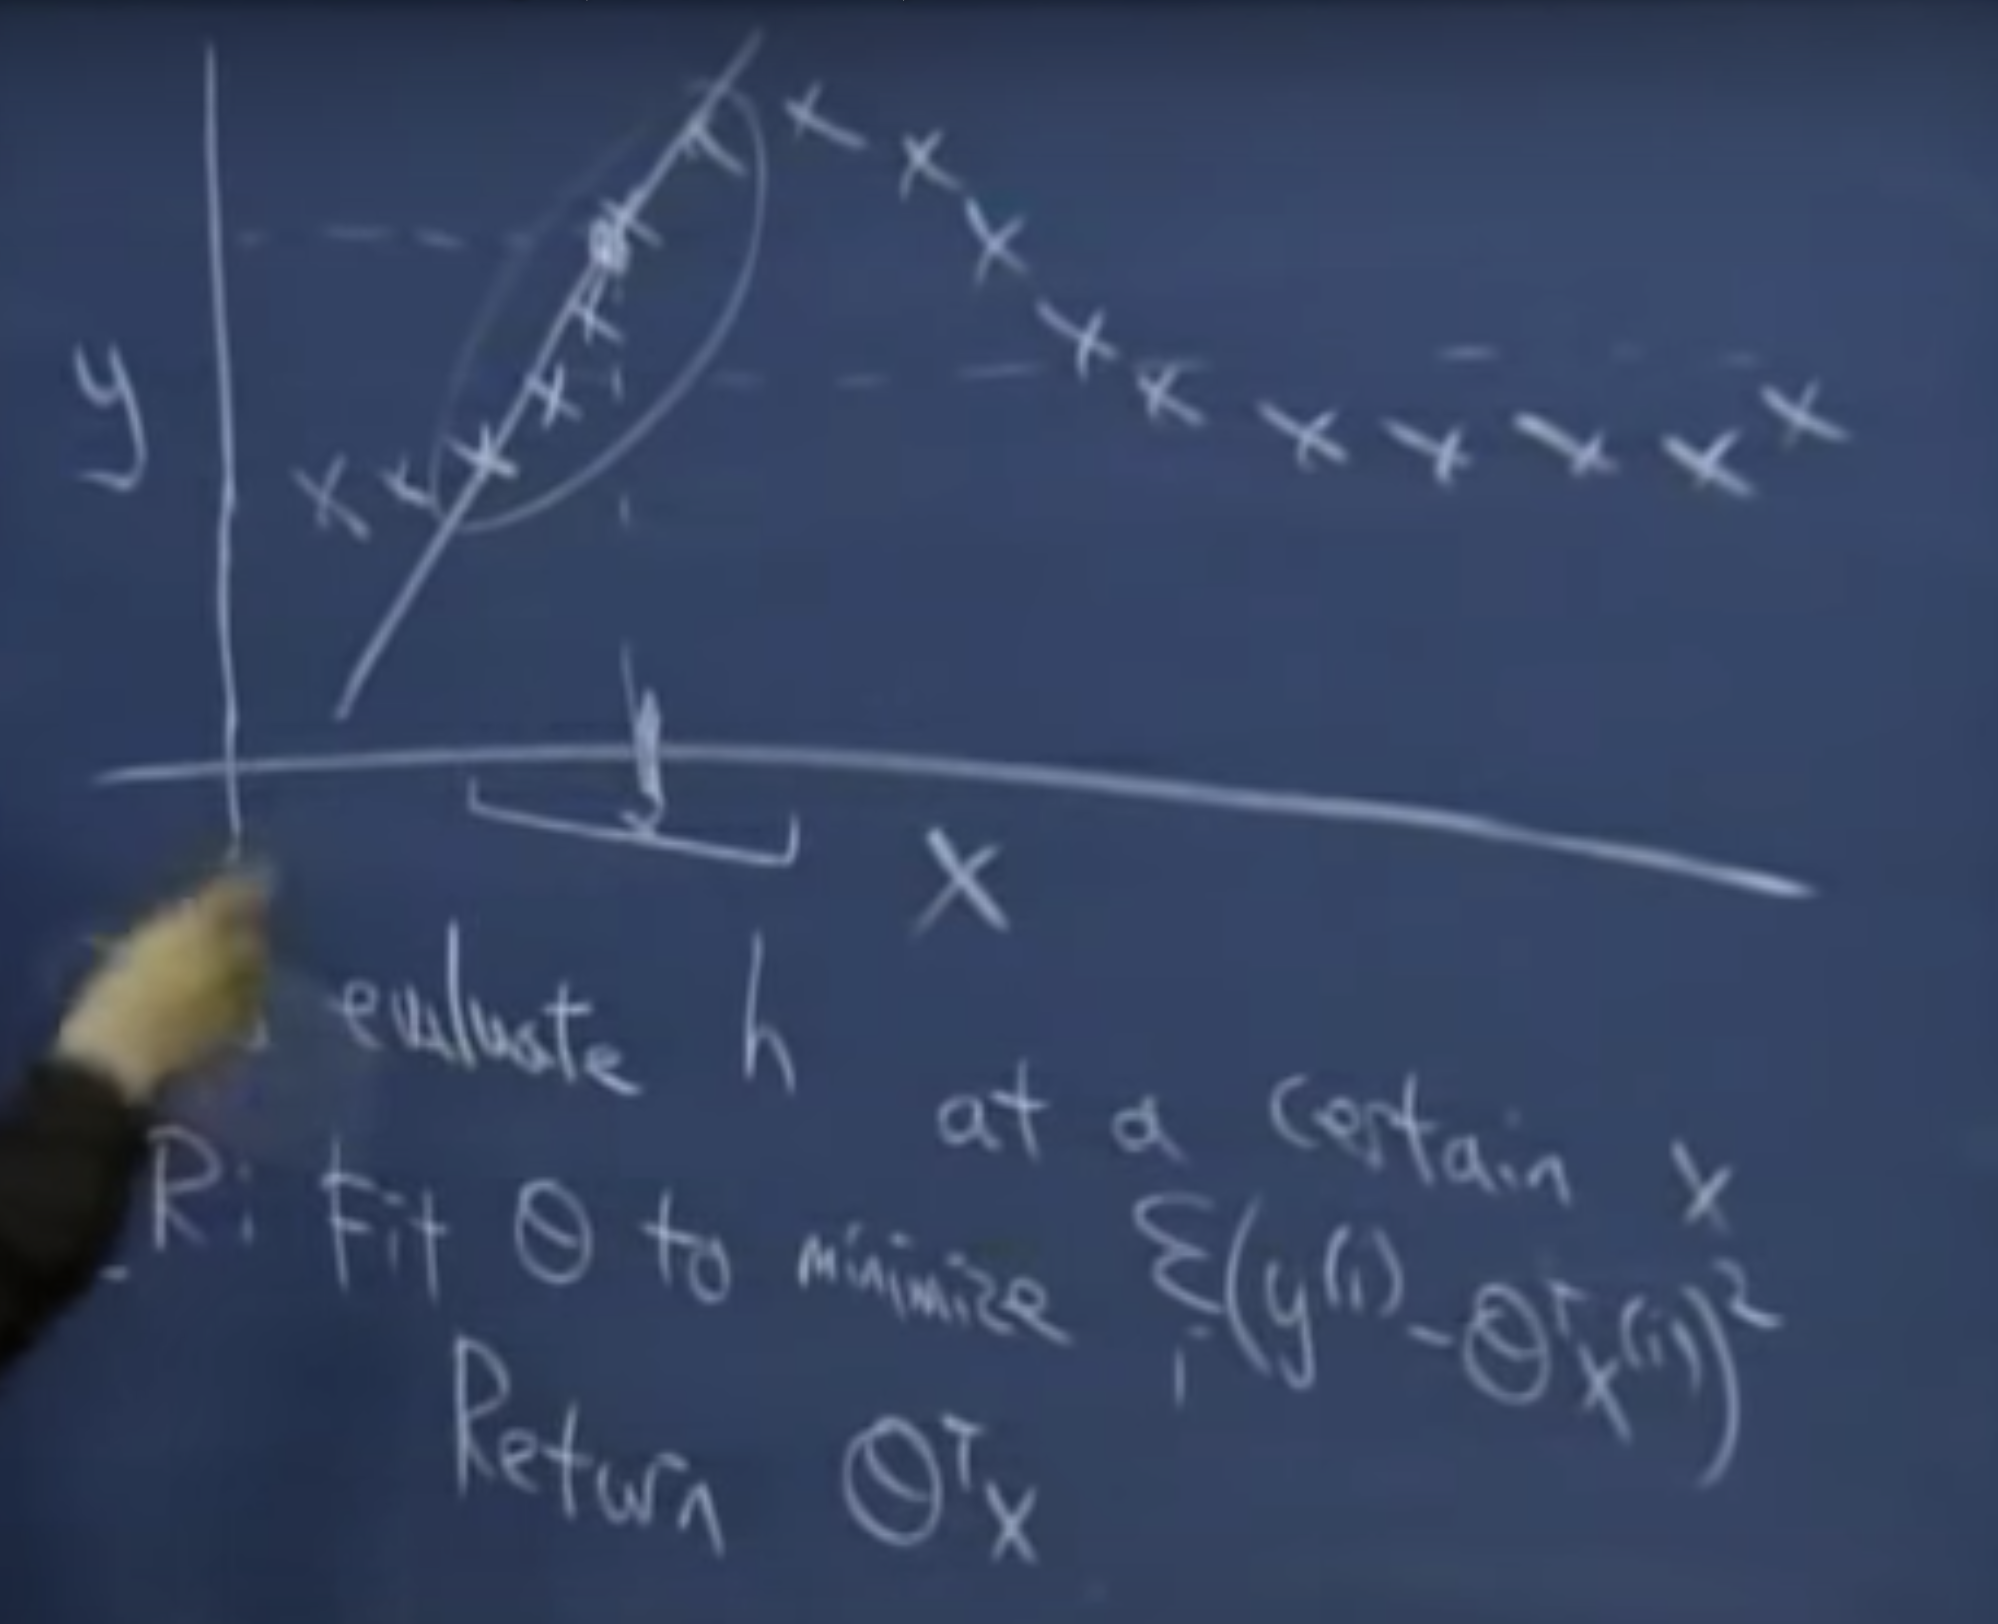 y
x
evaluate h at a certain x
R: Fit θ to minimize Σᵢ(y⁽ⁱ⁾ - θᵀx⁽ⁱ⁾)²
Return θᵀx